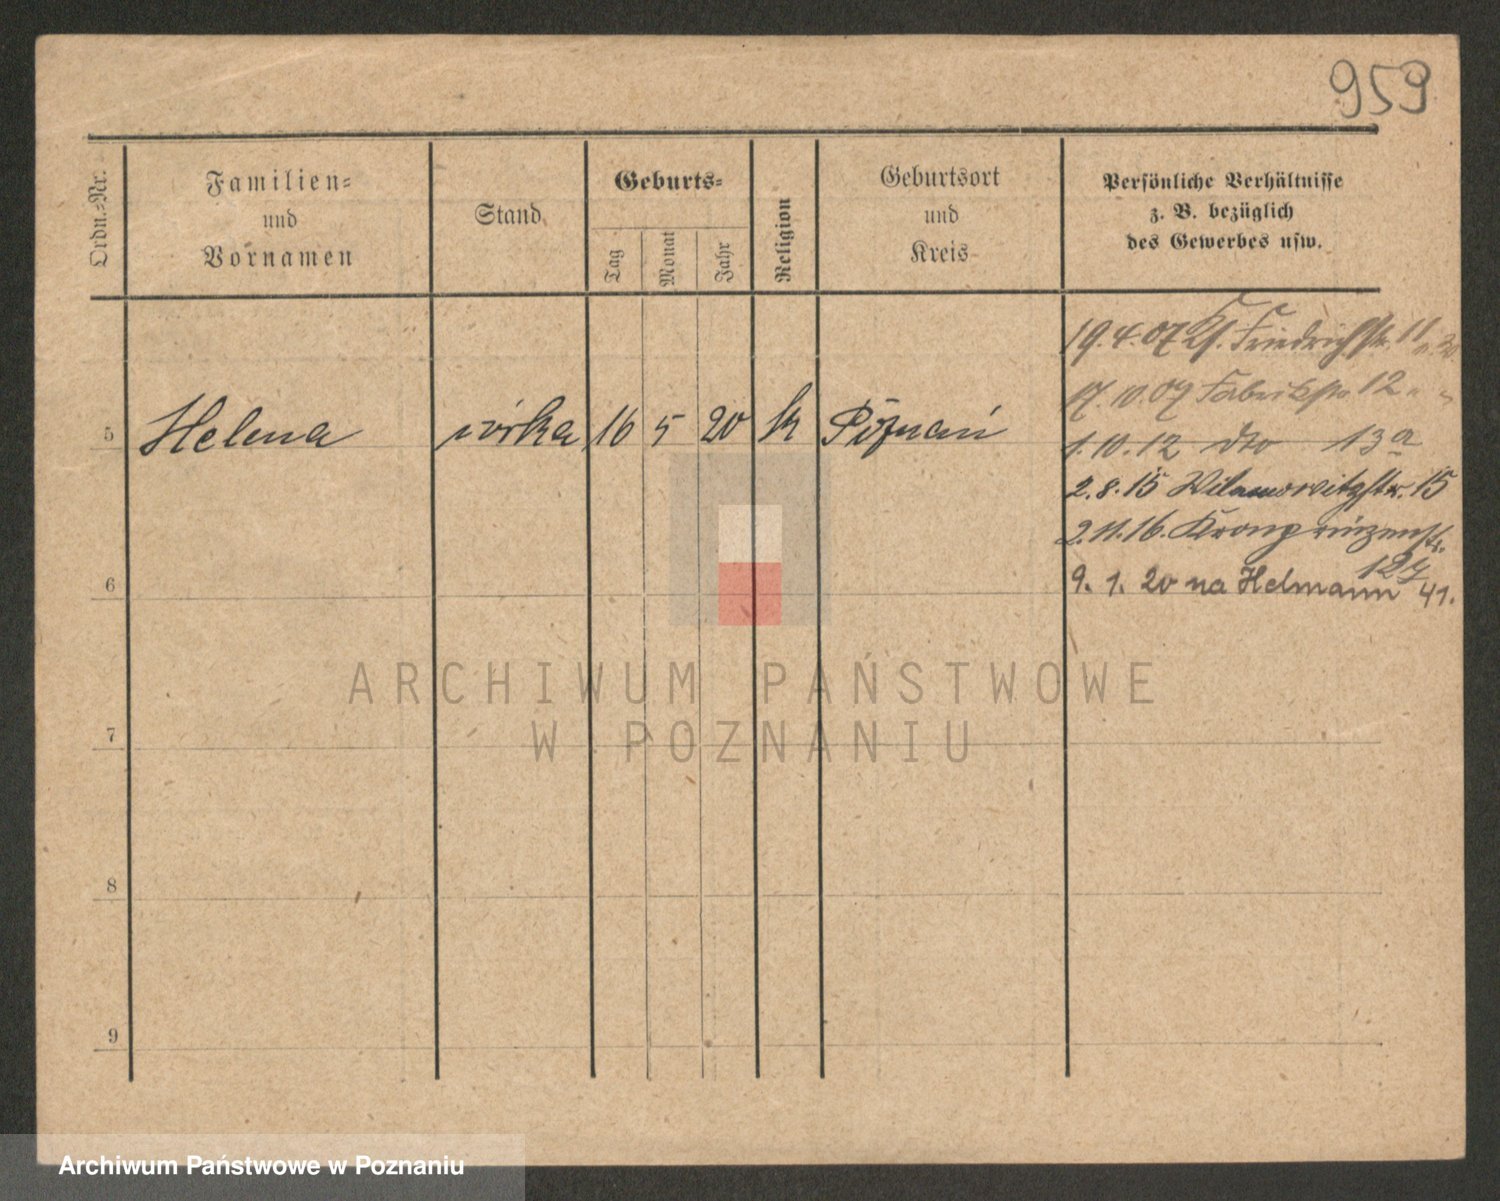 959
Ordn.-Nr.
Familien-
und
Vornamen
Stand
Geburts-
Tag
Monat
Jahr
Religion
Geburtsort
und
Kreis
Persönliche Verhältnisse
z. B. bezüglich
des Gewerbes usw.
19.4.07 Friedrichstr. 11
17.10.07 Fabrikstr. 12 " "
1.10.12 dto 13a
5 Helena córka 16 5 20 k Poznań
2.8.15 Wilamowitzstr. 15
2.11.16. Kronprinzenstr.
127
6
9. 1. 20 na Helmann 41.
ARCHIWUM PAŃSTWOWE
W POZNANIU
7
8
9
Archiwum Państwowe w Poznaniu